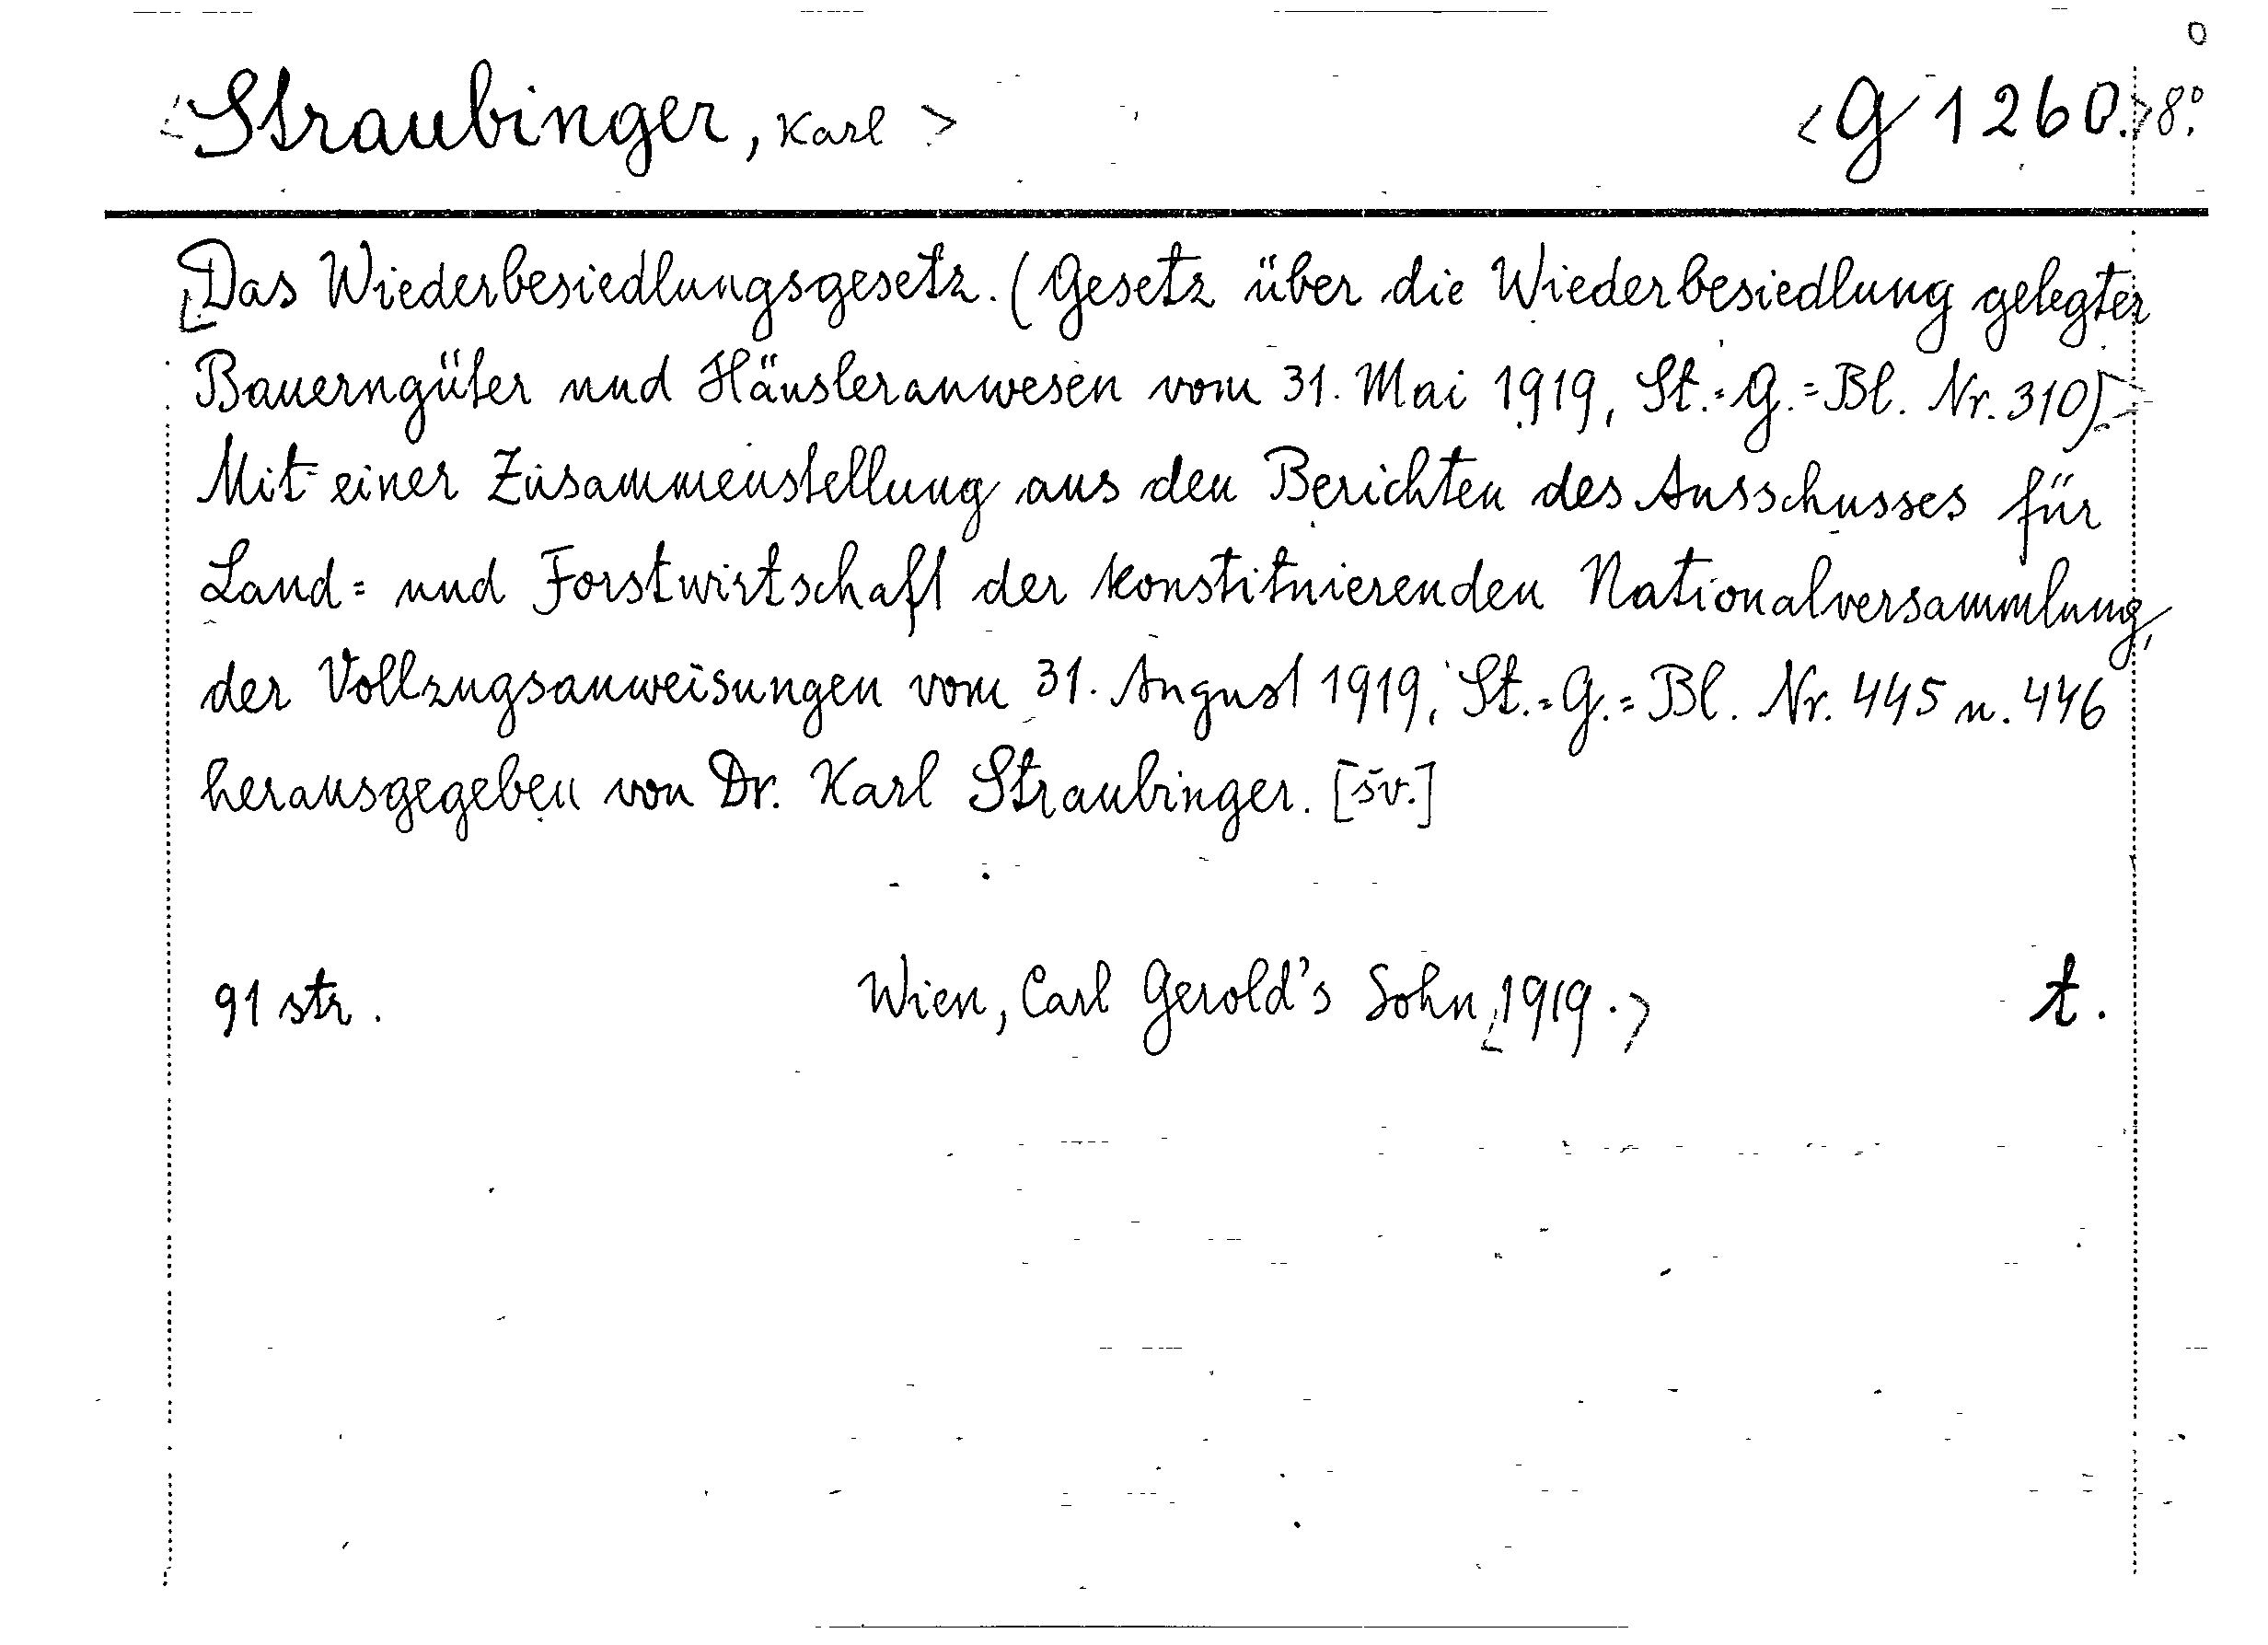 <Straubinger, Karl> <G 1260.> 8°.
Das Wiederbesiedlungsgesetz. (Gesetz über die Wiederbesiedlung gelegter
Bauerngüter und Häusleranwesen vom 31. Mai 1919, St.=G.=Bl. Nr. 310).
Mit einer Zusammenstellung aus den Berichten des Ausschusses für
Land= und Forstwirtschaft der konstituierenden Nationalversammlung,
der Vollzugsanweisungen vom 31. August 1919, St.=G.=Bl. Nr. 445 u. 446
herausgegeben von Dr. Karl Straubinger. [šv.]
91 str. Wien, Carl Gerold's Sohn, <1919.> t.